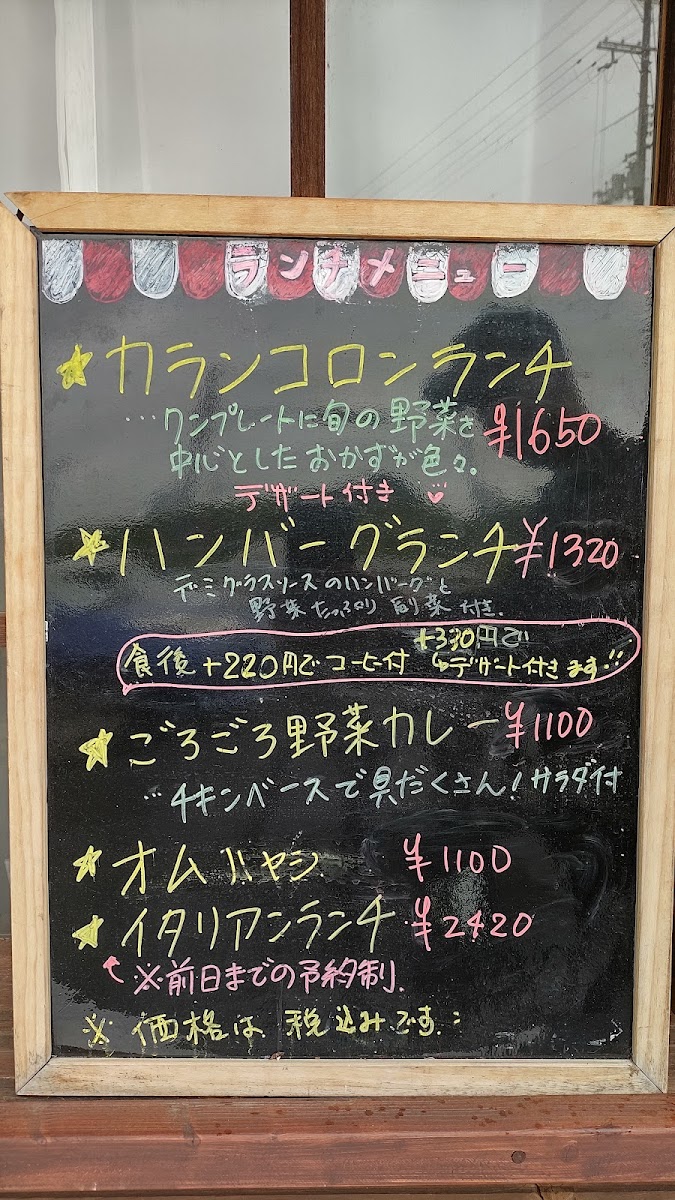 ランチメニュー
カランコロンランチ
…ワンプレートに旬の野菜を
中心としたおかずが色々。
¥1650
デザート付き
ハンバーグランチ ¥1320
デミグラスソースのハンバーグと
野菜たっぷり副菜付き.
+330円で
食後 +220円でコーヒー付 ↳デザート付きます!!
ごろごろ野菜カレー ¥1100
…チキンベースで具だくさん!サラダ付
オムハヤシ ¥1100
イタリアンランチ ¥2420
※前日までの予約制.
※ 価格は税込みです.